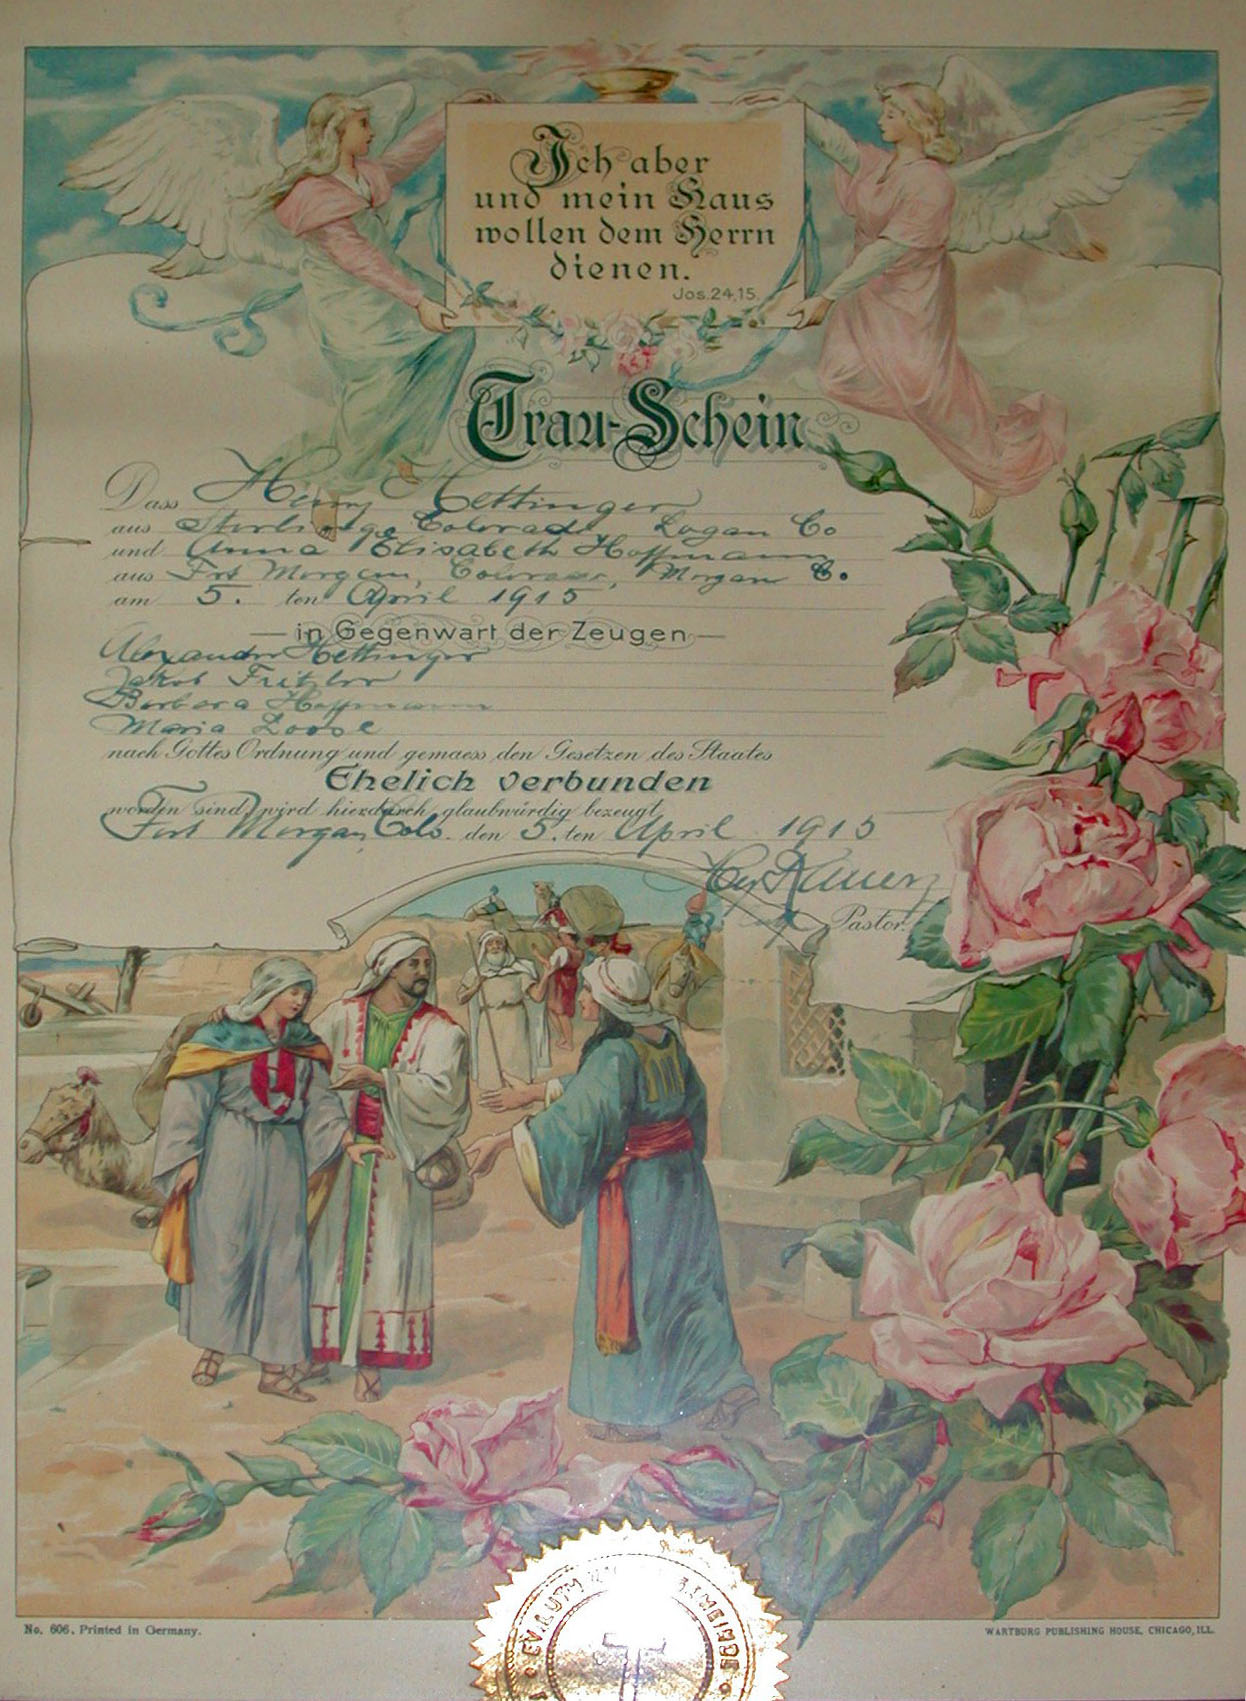 Ich aber
und mein Haus
wollen dem Herrn
dienen.
Jos. 24,15.
Trau-Schein
Dass Henry Hettinger
aus Sterling, Colorado Logan Co
und Anna Elisabeth Hoffmann
aus Fort Morgan, Colorado, Morgan C.
am 5. ten April 1915
— in Gegenwart der Zeugen —
Alexander Hettinger
Jakob Fritzler
Barbara Hoffmann
Maria Loose
nach Gottes Ordnung und gemaess den Gesetzen des Staates
Ehelich verbunden
worden sind, wird hierdurch glaubwürdig bezeugt
Fort Morgan, Colo. den 5. ten April 1915
Pastor.
EV. LUTH. GEMEINDE
No. 606. Printed in Germany.
WARTBURG PUBLISHING HOUSE, CHICAGO, ILL.